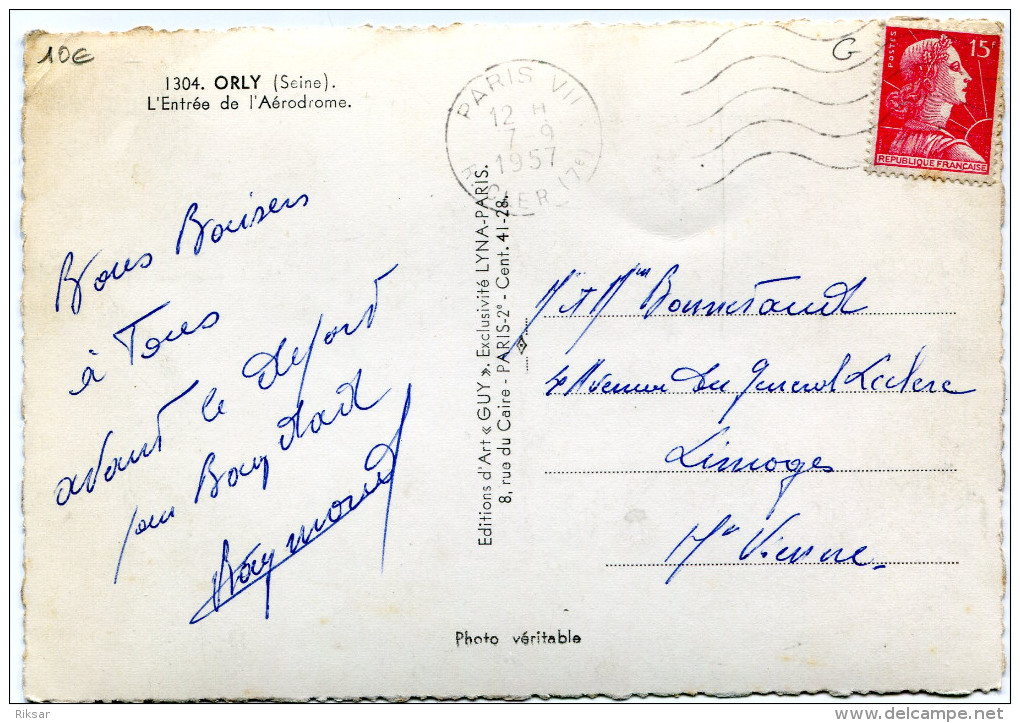 10€
1304. ORLY (Seine).
L'Entrée de l'Aérodrome.
G
PARIS VII
12 H
7-9
1957
(7e)
POSTES
15F
REPUBLIQUE FRANÇAISE
Bons Baisers
à Tous
avant le départ
pour Bagdad
Raymond
Editions d'Art « GUY ». Exclusivité LYNA-PARIS.
8, rue du Caire - PARIS-2e - Cent. 41-28.
Mr et Mme
Avenue du General Leclerc
Limoges
Hte Vienne.
Photo véritable
Riksar
delcampe.net